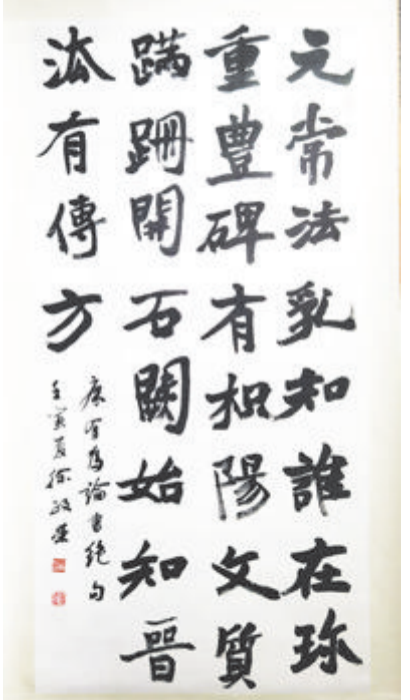 元常法乳知誰在珎
重豊碑有枳陽文質
蹣跚開石闕始知晉
法有傳方
康有為論書絶句
壬寅夏徐